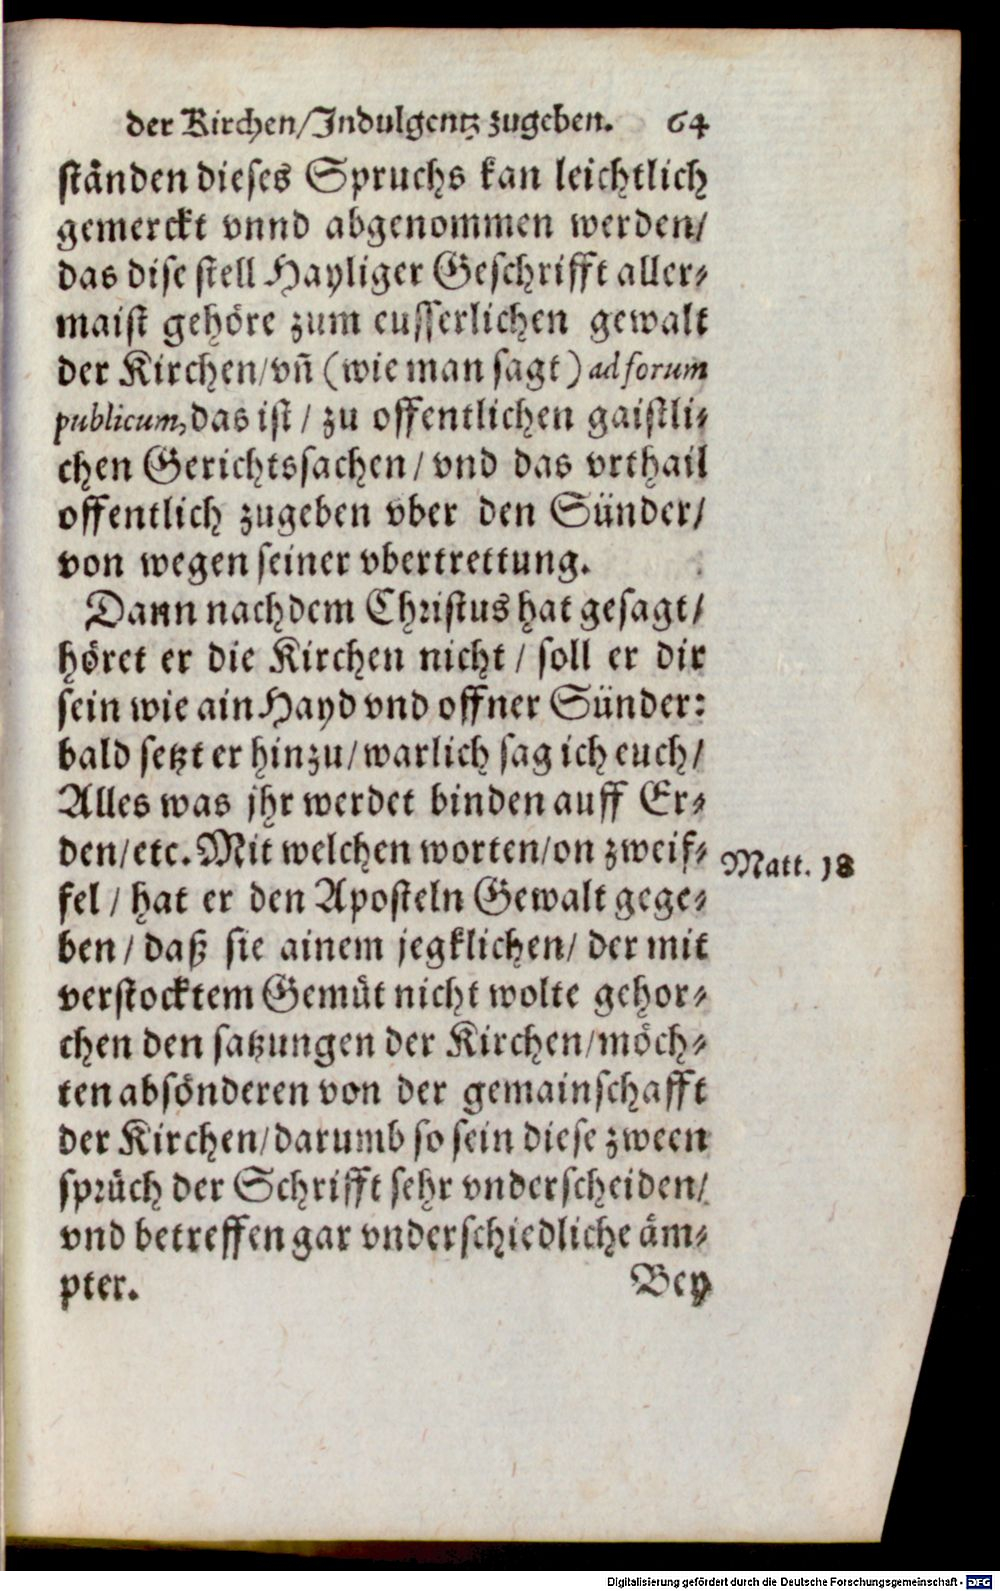 der Kirchen/Indulgentz zugeben. 64
ständen dieses Spruchs kan leichtlich
gemerckt vnnd abgenommen werden/
das dise stell Hayliger Geschrifft aller-
maist gehöre zum eusserlichen gewalt
der Kirchen/vñ (wie man sagt) ad forum
publicum, das ist / zu offentlichen gaistli-
chen Gerichtssachen / vnd das vrthail
offentlich zugeben vber den Sünder/
von wegen seiner vbertrettung.
Dann nachdem Christus hat gesagt/
höret er die Kirchen nicht / soll er dir
sein wie ain Hayd vnd offner Sünder:
bald setzt er hinzu/warlich sag ich euch/
Alles was jhr werdet binden auff Er-
den/etc. Mit welchen worten/on zweif-
Matt. 18
fel / hat er den Aposteln Gewalt gege-
ben / daß sie ainem jegklichen/ der mit
verstocktem Gemüt nicht wolte gehor-
chen den satzungen der Kirchen/möch-
ten absönderen von der gemainschafft
der Kirchen/darumb so sein diese zween
sprüch der Schrifft sehr vnderscheiden/
vnd betreffen gar vnderschiedliche äm-
pter.
Bey
Digitalisierung gefördert durch die Deutsche Forschungsgemeinschaft - DFG